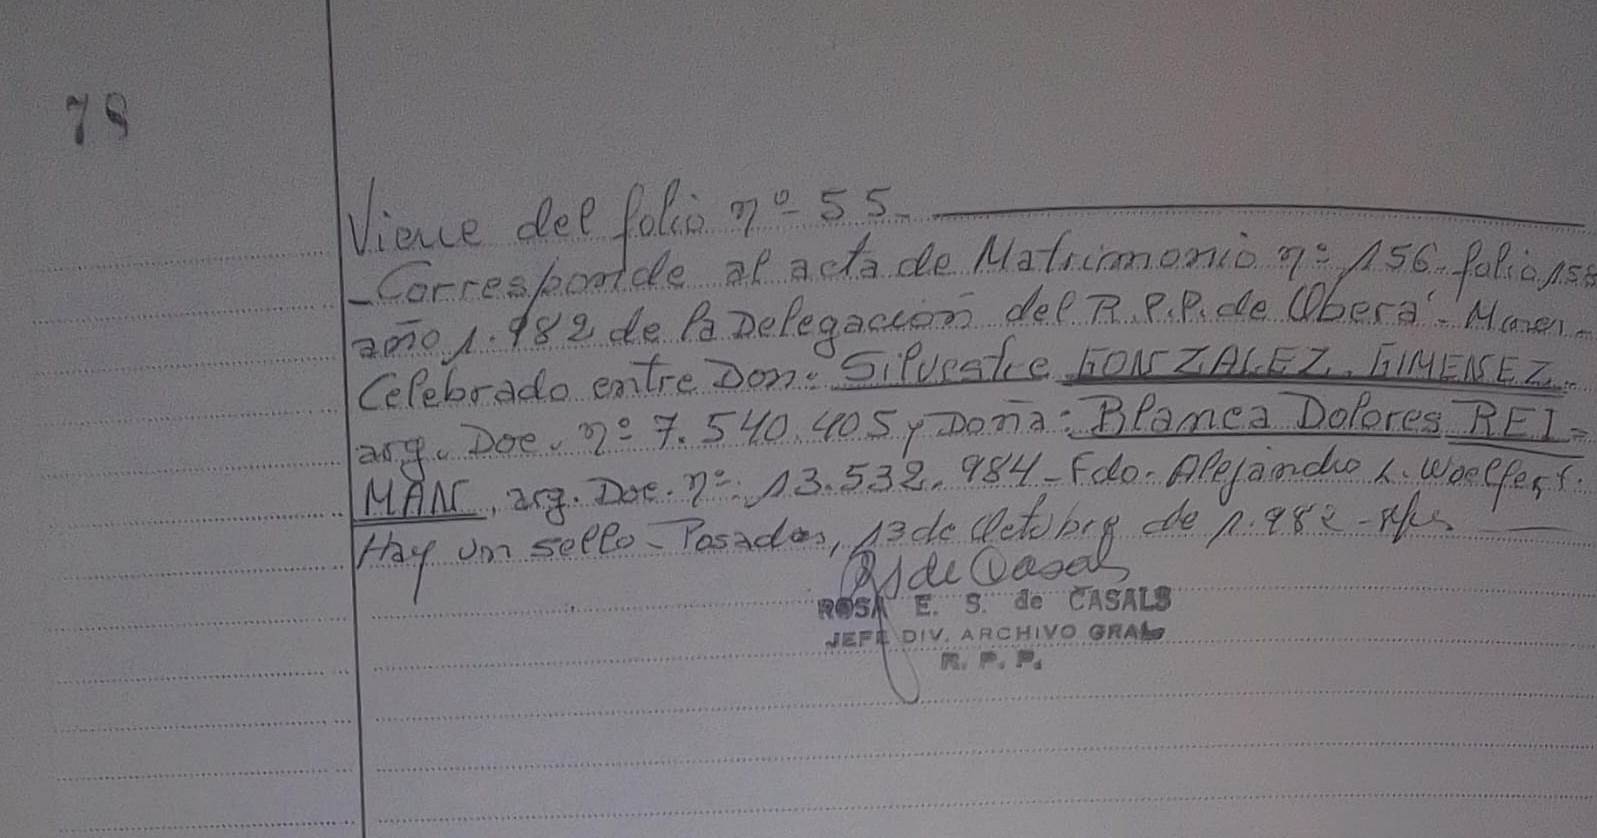 78
Viene del folio nº 55
-Corresponde al acta de Matrimonio nº 156. folio 158
año 1.982 de la Delegación del R.P.P. de Oberá -
Celebrado entre Don: Silvestre GONZALEZ, GIMENEZ
arg. Doc. nº 7.540.405 y Doña: Blanca Dolores REI=
MAN, arg. Doc. nº: 13.532.984 - Fdo. Alejandro L. Woelfert.
Hay un sello - Posadas, 13 de Octubre de 1.982 -
R S de Casals
ROSA E. S. de CASALS
JEFE DIV. ARCHIVO GRAL
R. P. P.